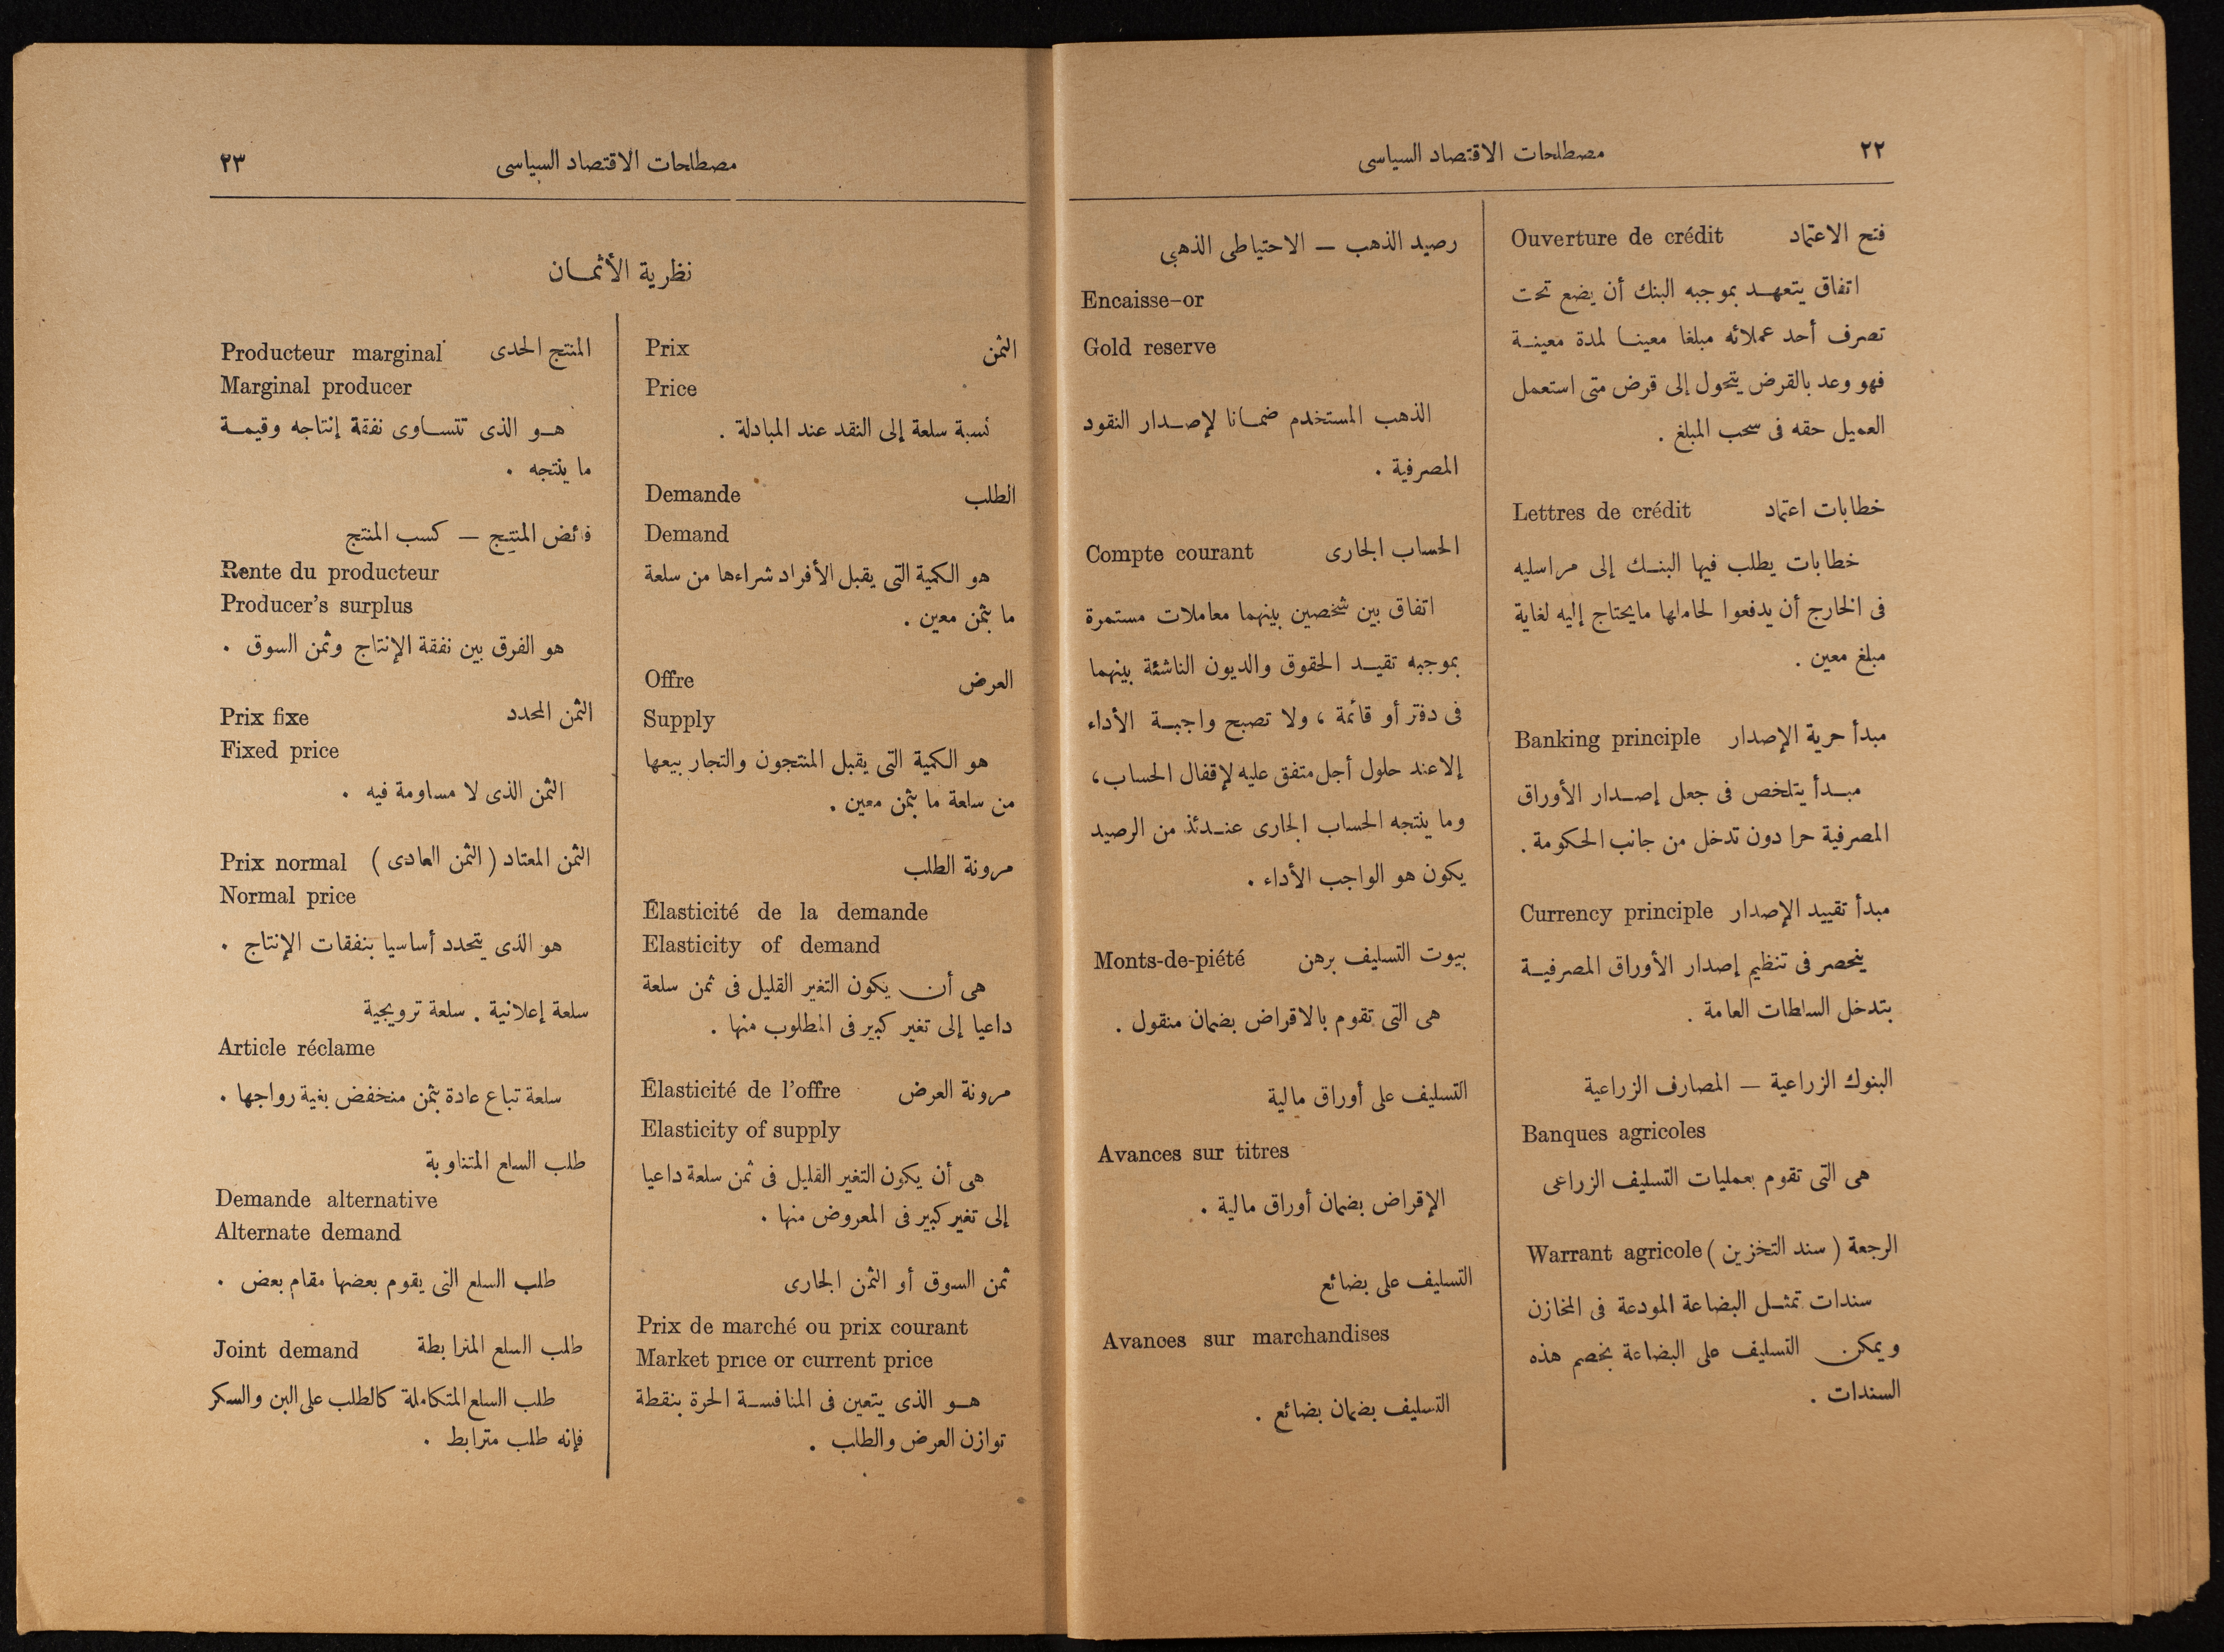 ٢٢
مصطلحات الاقتصاد السياسى
فتح الاعتماد Ouverture de crédit
اتفاق يتعهد بموجبه البنك أن يضع تحت
تصرف أحد عملائه مبلغا معينا لمدة معينة
فهو وعد بالقرض يتحول إلى قرض متى استعمل
العميل حقه فى سحب المبلغ .
خطابات اعتماد Lettres de crédit
خطابات يطلب فيها البنك إلى مراسليه
فى الخارج أن يدفعوا لحاملها ما يحتاج إليه لغاية
مبلغ معين .
مبدأ حرية الإصدار Banking principle
مبدأ يتلخص فى جعل إصدار الأوراق
المصرفية حرا دون تدخل من جانب الحكومة .
مبدأ تقييد الإصدار Currency principle
ينحصر فى تنظيم إصدار الأوراق المصرفية
بتدخل السلطات العامة .
البنوك الزراعية — المصارف الزراعية
Banques agricoles
هى التى تقوم بعمليات التسليف الزراعى
الرجعة ( سند التخزين ) Warrant agricole
سندات تمثل البضاعة المودعة فى المخازن
ويمكن التسليف على البضاعة بخصم هذه
السندات .
رصيد الذهب — الاحتياطى الذهبى
Encaisse-or
Gold reserve
الذهب المستخدم ضمانا لإصدار النقود
المصرفية .
الحساب الجارى Compte courant
اتفاق بين شخصين بينهما معاملات مستمرة
بموجبه تقيد الحقوق والديون الناشئة بينهما
فى دفتر أو قائمة ، ولا تصبح واجبة الأداء
إلا عند حلول أجل متفق عليه لإقفال الحساب ،
وما ينتجه الحساب الجارى عندئذ من الرصيد
يكون هو الواجب الأداء .
بيوت التسليف برهن Monts-de-piété
هى التى تقوم بالاقراض بضمان منقول .
التسليف على أوراق مالية
Avances sur titres
الإقراض بضمان أوراق مالية .
التسليف على بضائع
Avances sur marchandises
التسليف بضمان بضائع .
مصطلحات الاقتصاد السياسى
٢٣
نظرية الأثمان
الثمن Prix
Price
نسبة سلعة إلى النقد عند المبادلة .
الطلب Demande
Demand
هو الكمية التى يقبل الأفراد شراءها من سلعة
ما بثمن معين .
العرض Offre
Supply
هو الكمية التى يقبل المنتجون والتجار بيعها
من سلعة ما بثمن معين .
مرونة الطلب
Élasticité de la demande
Elasticity of demand
هى أن يكون التغير القليل فى ثمن سلعة
داعيا إلى تغير كبير فى المطلوب منها .
مرونة العرض Élasticité de l'offre
Elasticity of supply
هى أن يكون التغير القليل فى ثمن سلعة داعيا
إلى تغير كبير فى المعروض منها .
ثمن السوق أو الثمن الجارى
Prix de marché ou prix courant
Market price or current price
هو الذى يتعين فى المنافسة الحرة بنقطة
توازن العرض والطلب .
المنتج الحدى Producteur marginal
Marginal producer
هو الذى تتساوى نفقة إنتاجه وقيمة
ما ينتجه .
فائض المنتج — كسب المنتج
Rente du producteur
Producer's surplus
هو الفرق بين نفقة الإنتاج وثمن السوق .
الثمن المحدد Prix fixe
Fixed price
الثمن الذى لا مساومة فيه .
الثمن المعتاد ( الثمن العادى ) Prix normal
Normal price
هو الذى يتحدد أساسيا بنفقات الإنتاج .
سلعة إعلانية . سلعة ترويجية
Article réclame
سلعة تباع عادة بثمن منخفض بغية رواجها .
طلب السلع المتناوبة
Demande alternative
Alternate demand
طلب السلع التى يقوم بعضها مقام بعض .
طلب السلع المترابطة Joint demand
طلب السلع المتكاملة كالطلب على البن والسكر
فإنه طلب مترابط .